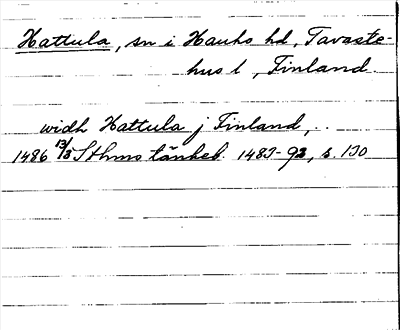 Hattula, sn i Hauho hd, Tavaste-
hus l, Finland.
widh Hattula j Finland, ..
1486 13/3 Sthms tänkeb. 1483-93, s. 130